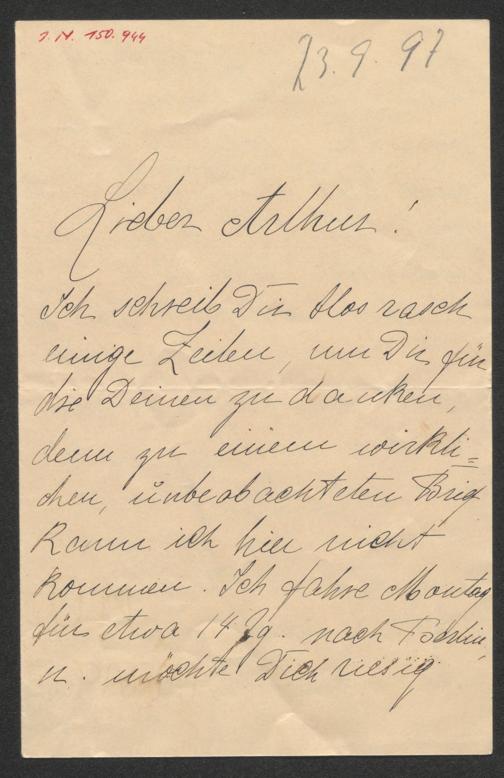 I. N. 150.944
23. 9. 97
Lieber Arthur!
Ich schreib Dir blos rasch
einige Zeilen, um Dir für
die Deinen zu danken,
denn zu einem wirkli=
chen, unbeobachteten Brief
kann ich hier nicht
kommen. Ich fahre Montag
für etwa 14 Tg. nach Berlin,
u. möchte Dich riesig